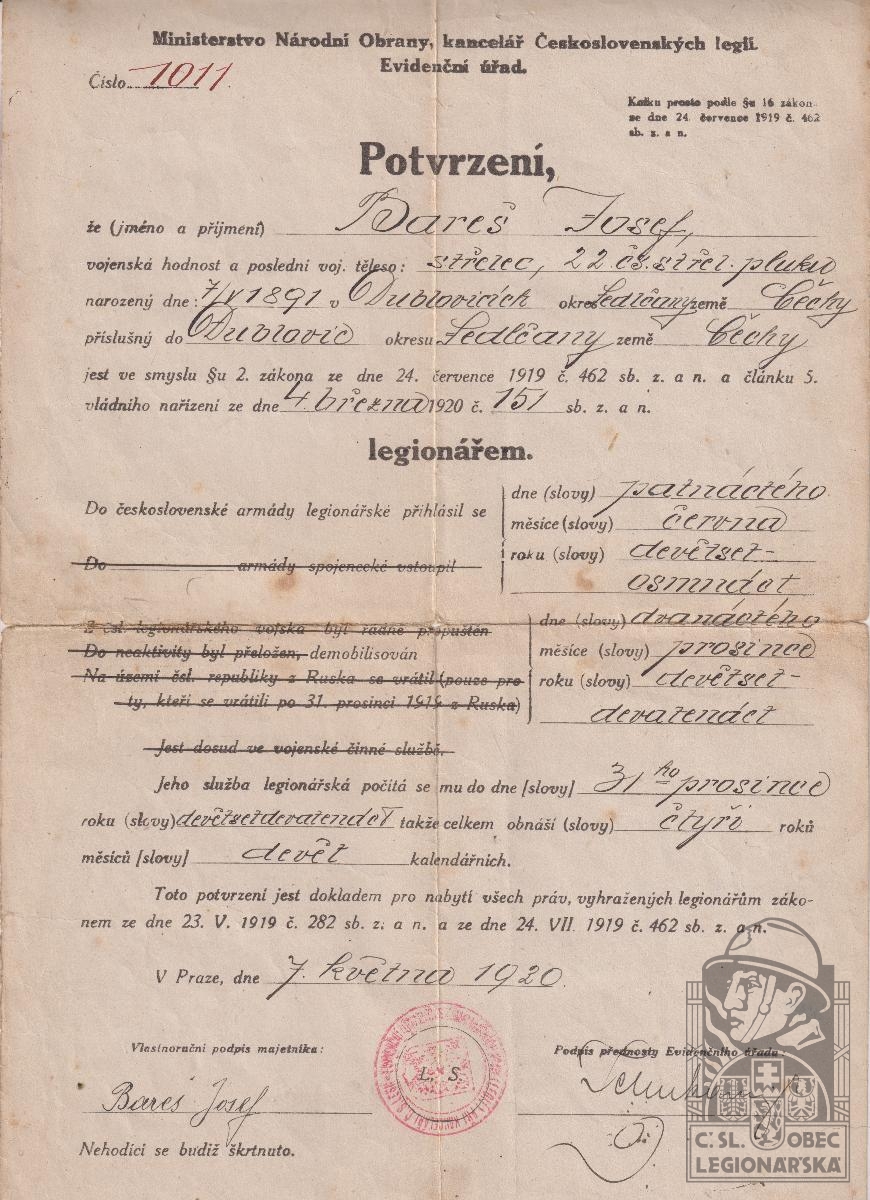 Ministerstvo Národní Obrany, kancelář Československých legií.
Evidenční úřad.
Číslo 1011
Kolku prosto podle §u 16 zákon.
ze dne 24. července 1919 č. 462
sb. z. a n.
Potvrzení,
že (jméno a příjmení) Bareš Josef,
vojenská hodnost a poslední voj. těleso: střelec, 22. čs. střel. pluku
narozený dne: 7/V 1891 v Dublovicích okres Sedlčany země Čěchy
příslušný do Dublovic okresu Sedlčany země Čěchy
jest ve smyslu §u 2. zákona ze dne 24. července 1919 č. 462 sb. z. a n. a článku 5.
vládního nařízení ze dne 4. března 1920 č. 151 sb. z. a n.
legionářem.
Do československé armády legionářské přihlásil se
dne (slovy) patnáctého
měsíce (slovy) června
Do armády spojenecké vstoupil
roku (slovy) devětset-
osmnáct
Z čsl. legionářského vojska byl řádně propuštěn
dne (slovy) dvanáctého
Do neaktivity byl přeložen, demobilisován
měsíce (slovy) prosince
Na území čsl. republiky z Ruska se vrátil (pouze pro
roku (slovy) devětset-
ty, kteří se vrátili po 31. prosinci 1919 z Ruska)
devatenáct
Jest dosud ve vojenské činné službě.
Jeho služba legionářská počítá se mu do dne [slovy] 31 ho prosince
roku (slovy) devětsetdevatenáct takže celkem obnáší (slovy) čtyři roků
měsíců [slovy] devět kalendářních.
Toto potvrzení jest dokladem pro nabytí všech práv, vyhražených legionářům záko-
nem ze dne 23. V. 1919 č. 282 sb. z. a n. a ze dne 24. VII. 1919 č. 462 sb. z. a n.
V Praze, dne 7. května 1920.
Vlastnoruční podpis majetníka:
Podpis přednosty Evidenčního úřadu:
L. S.
Bareš Josef
Nehodící se budiž škrtnuto.
Č.SL. OBEC
LEGIONÁŘSKÁ